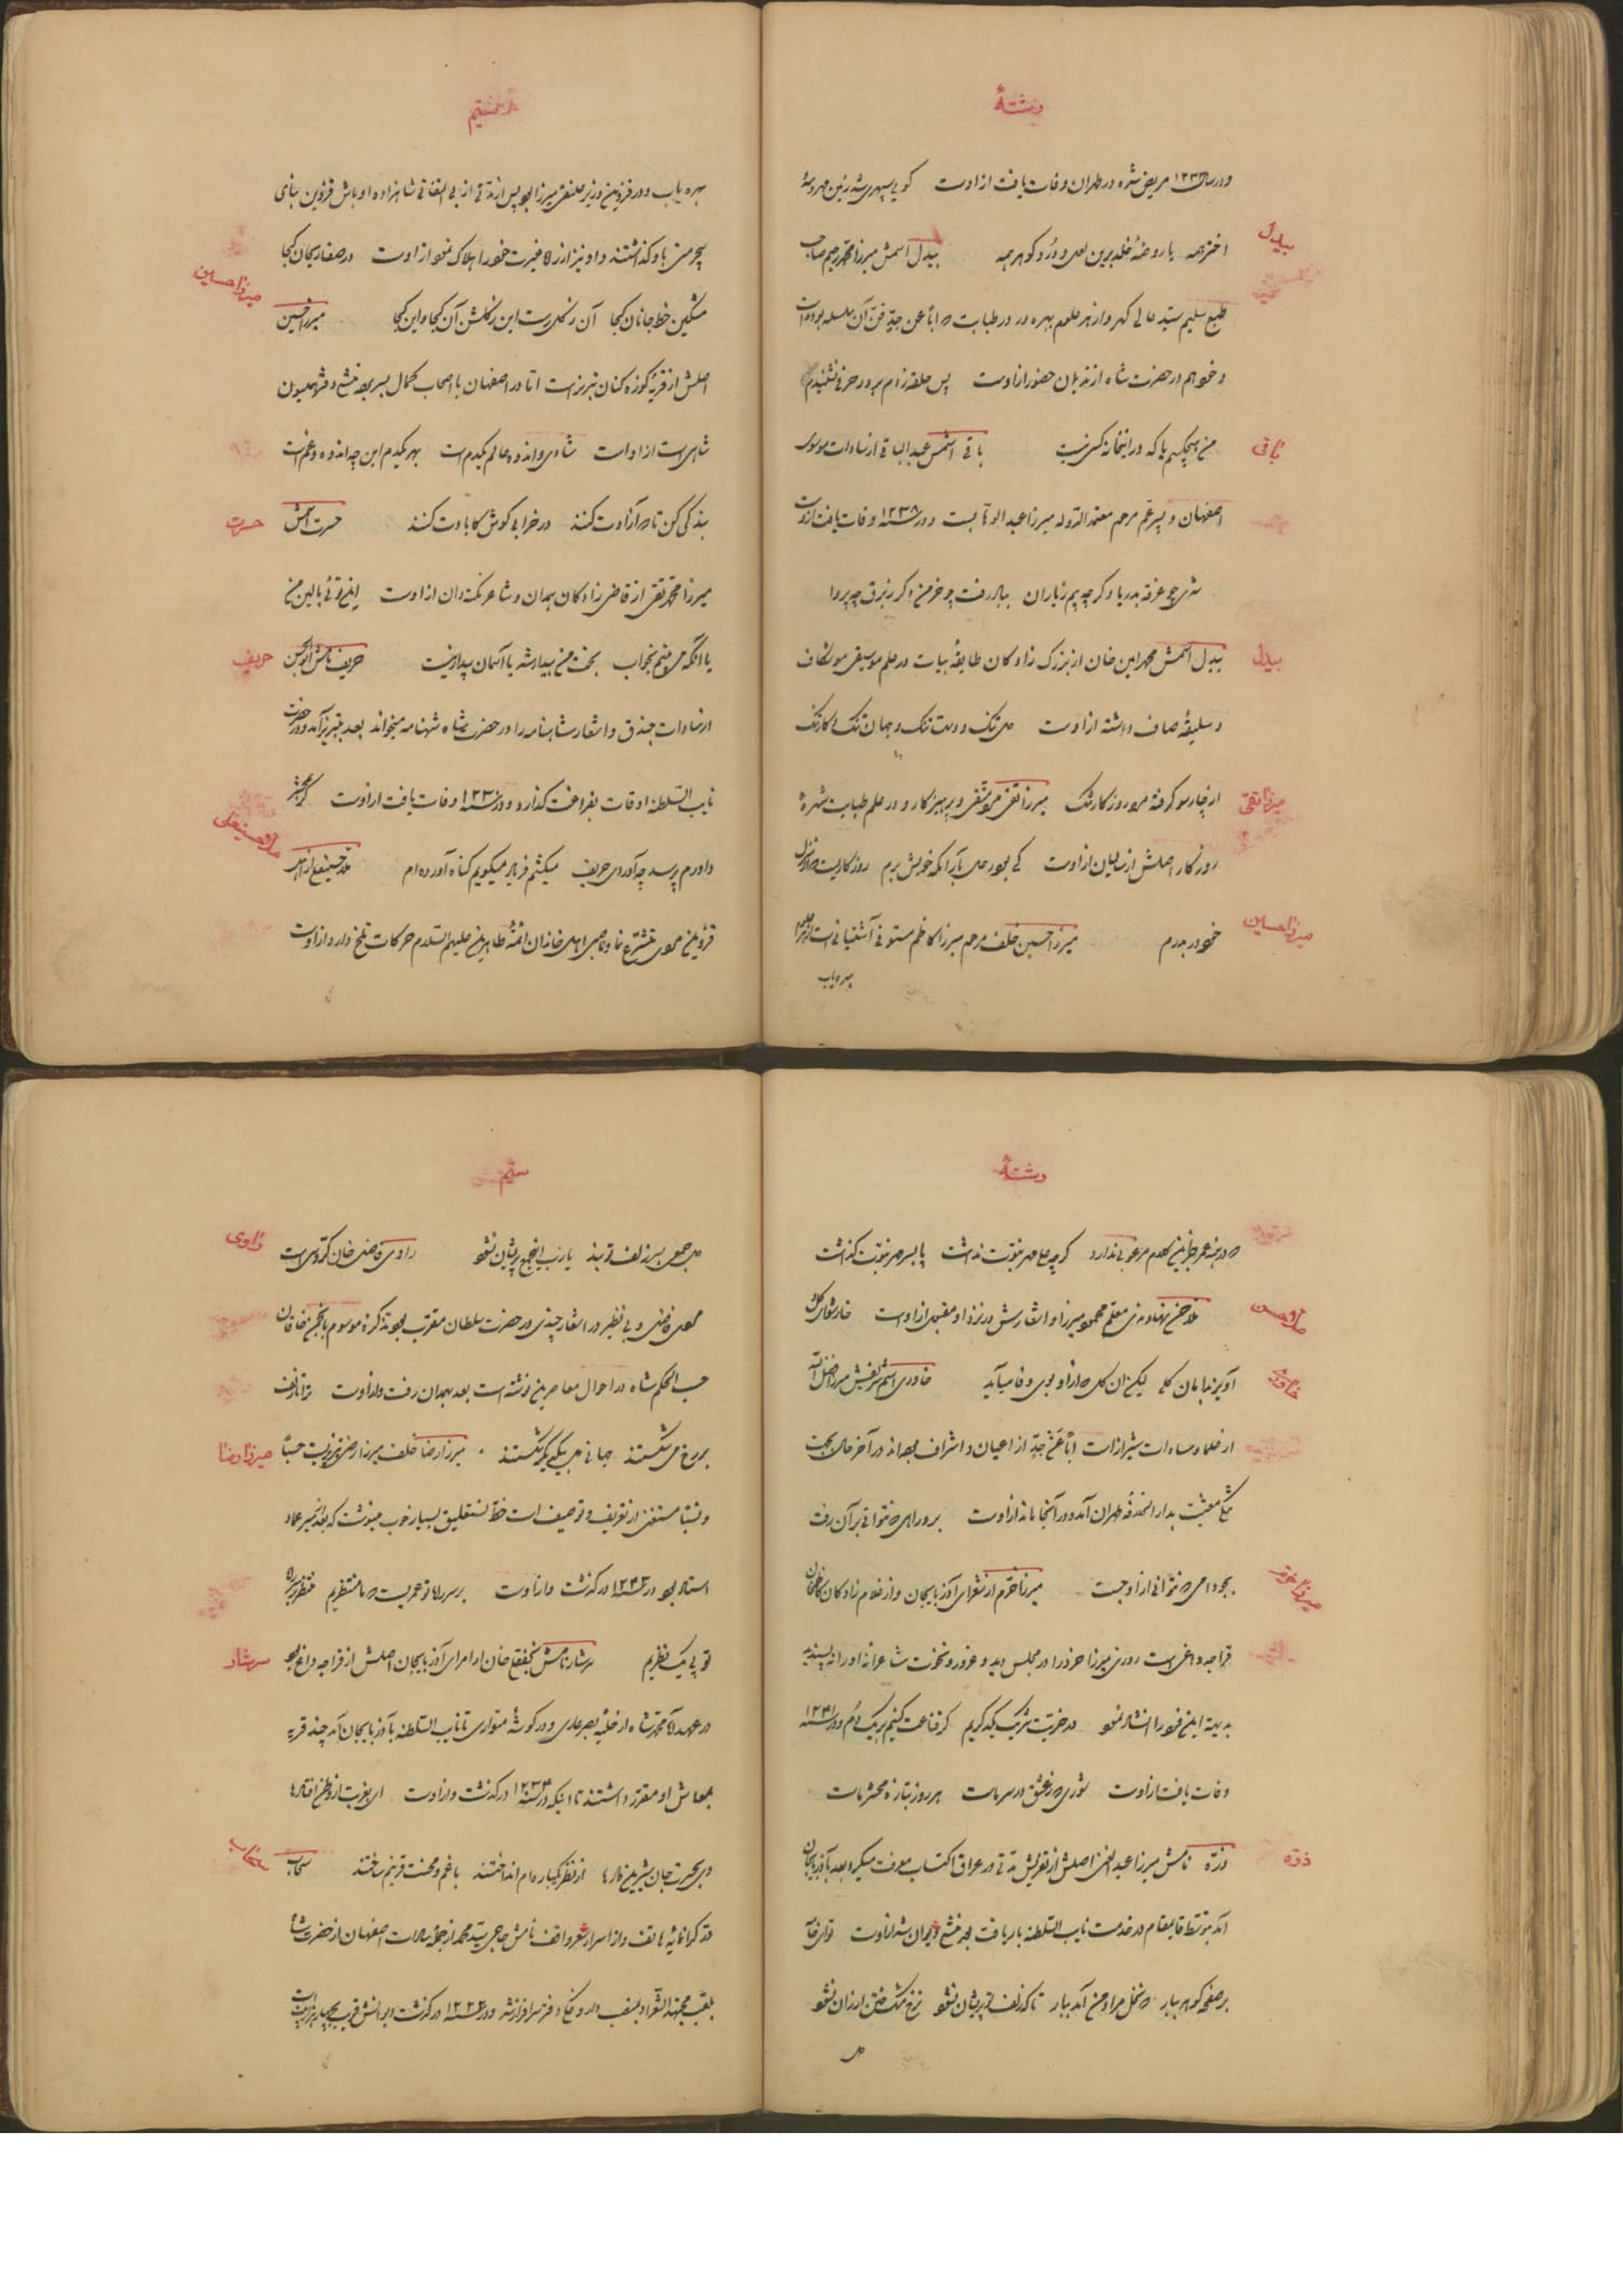 رشتهٔ
و در سال ۱۲۳ مریض شده در طهران وفات یافت از اوست گویی سپهر شد زین
بیدل
اختر همه یا روضهٔ خلد برین لعل و در و گوهر همه بیدل اسمش میرزا محمد رحیم صاحب
طبع سلیم سید عالی گهر و از هر علوم بهره ور در طبابت که اباً عن جد فن آن سلسله بوده است
و خواهم در حضرت شاه از ندیمان حضور از اوست پس حلقه زدم بر در حرفی نشنیدم
باقی
من هیچکسم یا که در این خانه کسی نیست باقی اسمش عبدالباقی از سادات موسوی
اصفهان و پسر عم مرحوم معتمد الدوله میرزا عبدالوهاب است و در سنه ۱۲۳۸ وفات یافت از اوست
شدی چو غرقه بدریا دگر چه بیم ز باران بباد رفت چو خرمن دگر ز برق چه پروا
بیدل
بیدل اسمش محمد امین خان از بزرگ زادگان طایفهٔ بیات در علم موسیقی موشکاف
و سلیقهٔ صاف داشته از اوست دل تنگ و دست تنگ و جهان تنگ و کار تنگ
میرزا تقی
از چارسو گرفته مرا روزگار تنگ میرزا تقی مرد متقی و پرهیزکار و در علم طبابت شهرهٔ
روزگار اصلش از از اوست کی بود دل بار آنکه خویش برم روزگاریست که از منزل
میرزا حسین
خود در بدرم میرزا حسین خلف مرحوم میرزا کاظم مستوفی آشتیانی است از هر علوم
بهره یاب
هشتم
بهره یاب و در قزوین وزیر علینقی میرزا بود پس از مدتی از بی التفاتی شاهزاده اوباش قزوین بنای
بیحرمتی باو گذاشتند و او نیز از راه غیرت خود را هلاک نمود از اوست در صفا ریحان کجا
میرزا حسین
مشکین خط جانان کجا آن ز گل رست این ز گلشن آن کجا و این کجا میرزا حسین
اصلش از قریهٔ کوزه کنان تبریز است اما در اصفهان با اصحاب کمال بسر برده منشی دفتر همیون
شاهی است از اوست شادی و اندوه عالم یکدم است بهر یکدم این چه اندوه و غم است
حسرت
بندگی کن تا که آزادت کنند در خرابی کوش کابادت کنند حسرت اسمش
میرزا محمد تقی از قاضی زادگان همدان و شاعر نکته دان از اوست اینمن توئی بالین من
حریف
یا آنکه می بینم بخواب بخت من بیدار شد یا آسمان بیدار نیست حریف نامش ابوالحسن
از سادات جندق و اشعار شاهنامه را در حضرت شاه شهنامه میخواند بعد به تبریز آمد و در حضرت
نایب السلطنه اوقات بفراغت گذارد و در سنه ۱۲۳۰ وفات یافت از اوست گر بحشر
ملا حسینعلی
داورم پرسد چه آوردی حریف میکشم فریاد میگویم گناه آورده ام ملا حسینعلی از اهل
قزوین مردی متشرع نما و مداحی اهل خاندان ائمهٔ طاهرین علیهم السلام حرکات تلخ دارد از اوست
رشتهٔ
که در همه عمر جز این کلام مرغوبی ندارد گرچه علی مهر نبوت نداشت پا بسر مهر نبوت گذاشت
ملا حسن
ملا حسن نهاوندی معلم محمود میرزا و اشعارش در نزد او مقبول از اوست خار سودای گل
خاوری
آویزد بدامان کسی لیکن آن گل که از او بوی وفا میآید خاوری اسم شریفش میرزا فضل الله
از علما و سادات شیراز است اباً عن جد از اعیان و اشراف بوده اند در آخر حال بجهت
تنگی معیشت بدار الخلافه طهران آمد و در آنجا ماند از اوست بر و راهی که نتوانی بر آن رفت
میرزا خرم
بجو دامی که نتوانی از او جست میرزا خرم از شعرای آذربایجان و از غلام زادگان کاظم خان
قراجه داغی است روزی میرزا خود را در مجلس دید و غرور و نخوت شاعرانهٔ او را نه پسندید
بدیهه این فرد را انشاد نمود در خریت شریک یکدگریم گر قناعت کنیم بیک دم و در سنه ۱۲۳۱
وفات یافت از اوست شوری که ز عشق در سر ماست هر روز بتازه محشر ماست
ذره
ذره نامش میرزا عبدالغنی اصلش از تفریش مدتی در عراق اکتساب معرفت میکرد بعد بآذربایجان
آمد بتوسط قایمقام در خدمت نایب السلطنه بار یافت بعد منشی دیوان شد از اوست
بر صفحه گوهر ببار که نخل مراد من آمد ببار تا که زلف تو پریشان نشود نرخ مشک ختن ارزان نشود
دل
ستم
راوی
دل جمعی بسر زلف تو بند یا رب این جمع پریشان نشود راوی فاضل خان گروسی است
مردی فاضل و بی نظیر در اشعار چندی در حضرت سلطان مقرب بود تذکرهٔ موسوم بانجمن خاقان
حسب الحکم شاه در احوال معاصرین نوشته است بعد بهمدان رفت و از اوست ترا تا زلف
میرزا رضا
بر رخ می شکستند جهانی دل بیکدیگر شکستند میرزا رضا خلف میرزا رضی تبریزیست حسباً
و نسباً مستغنی از تعریف و توصیف است خط نستعلیق بسیار خوب مینوشت که بعد از میر عماد
استاد بود در سنه ۱۲۴۳ درگذشت و از اوست بر سر راه تو عمریست که ما منتظریم منتظر بر ره
سرشار
تو پی یک نظریم سرشار نامش نجفقلی خان از امرای آذربایجان اصلش از قراجه داغ بود
در عهد آقا محمد شاه از حلیهٔ بصر عاری و در گوشهٔ متواری تا نایب السلطنه بآذربایجان آمد چند قریه
بمعاش او مقرر داشتند تا اینکه در سنه ۱۲۳۳ درگذشت و از اوست ای بغربت از وطن افتاده ها
سحاب
وی بحسرت جان شیرین داده ها از نظر یکباره ام انداختند با غم و محنت قرینم ساختند سحاب
در گرانمایهٔ هاتف و از اسرار شعر واقف نامش حاجی سید محمد از جمله سادات اصفهان از حضرت شاه
بلقب مجتهد الشعرا و بلطف سرافراز شد و در سنه ۱۲۲۲ درگذشت دیوانش قریب بچهار هزار بیت است